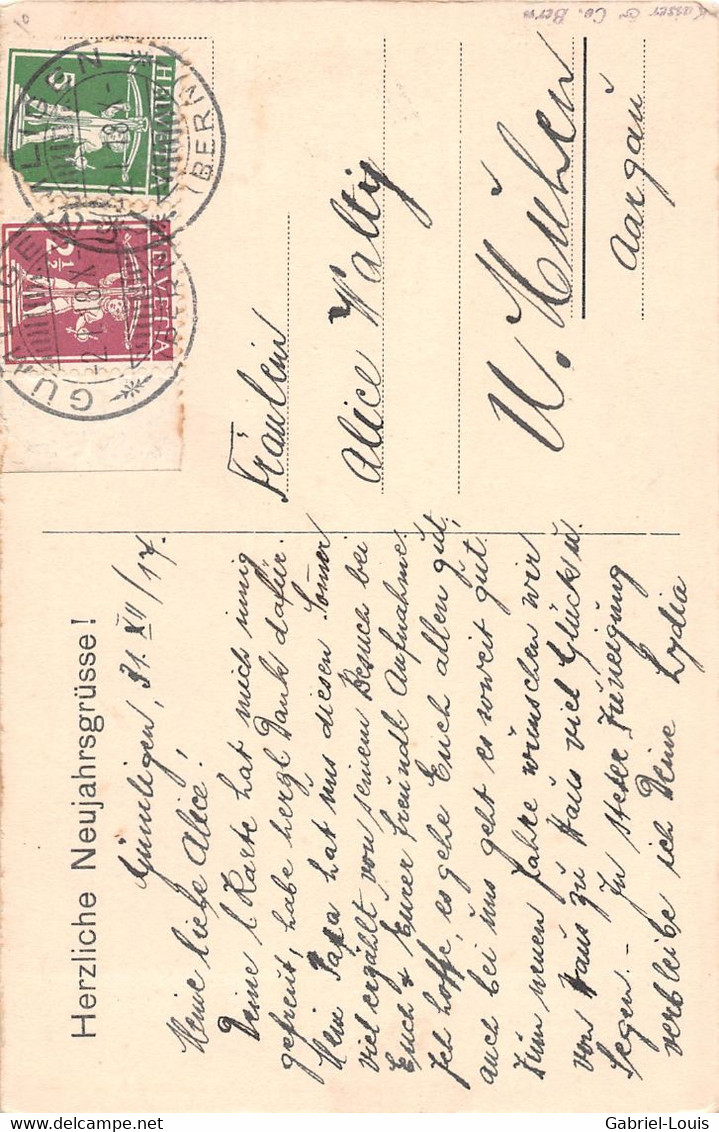 Herzliche Neujahrsgrüsse!
Gümligen, 31. XII/17.
Meine liebe Alice!
Deine l. Karte hat mich innig
gefreut, habe herzl. Dank dafür.
Mein Papa hat uns diesen Somer
viel erzählt von seinem Besuch bei
Euch & Eurer freundl. Aufnahme.
Ich hoffe, es gehe Euch allen gut,
auch bei uns geht es soweit gut.
Zum neuen Jahre wünschen wir
von Haus zu Haus viel Glück u.
Segen. – In steter Zuneigung
verbleibe ich Deine Lydia
Fräulein
Alice Wältig
U. Muhen
Aargau
HELVETIA
5
HELVETIA
2½
GÜMLIGEN
(BERN)
-2.I.18.X-
Kaiser & Co. Bern
delcampe.net
Gabriel-Louis